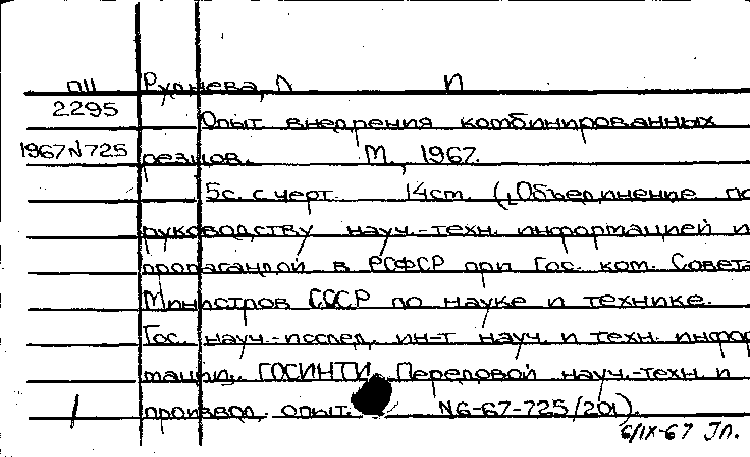 П11 Руднева, Л И
2295
Опыт внедрения комбинированных
1967 N 725 резцов. М., 1967.
5с. с черт. 14 cm. (Объединение по
руководству науч.-техн. информацией и
пропагандой в РСФСР при Гос. ком. Совета
Министров СССР по науке и технике.
Гос. науч.-исслед. ин-т науч. и техн. инфор
мации. ГОСИНТИ. Передовой науч.-техн. и
1 производ. опыт. N6-67-725/201).
6/IX-67 Эл.